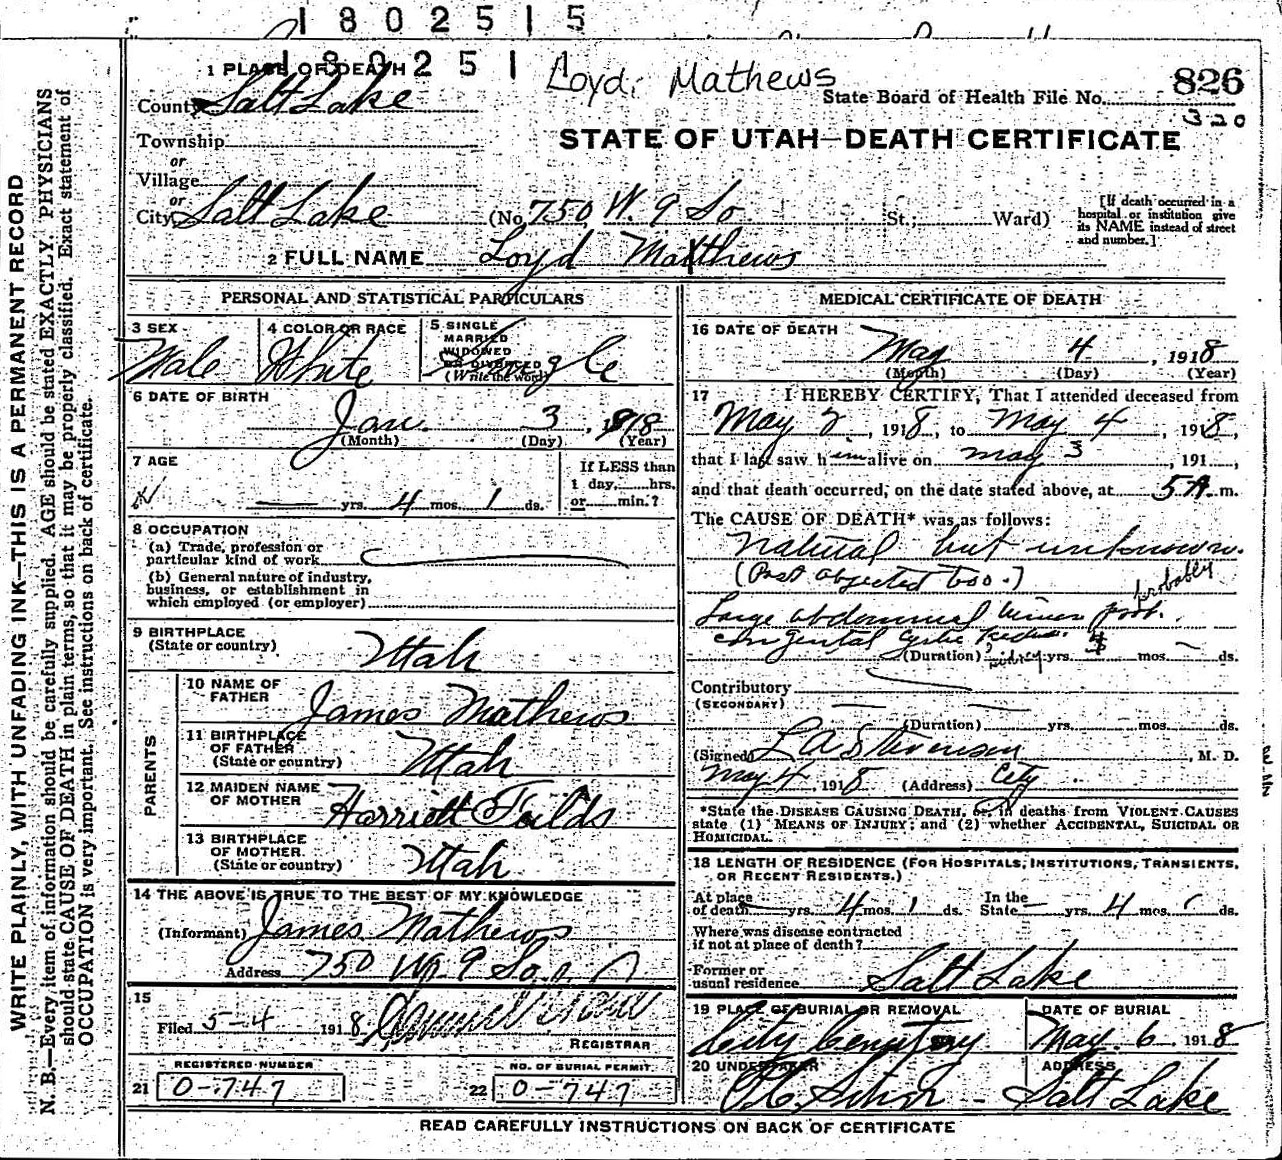 1802515
180251
Loyd Mathews
826
320
1 PLACE OF DEATH
County Salt Lake
State Board of Health File No.
STATE OF UTAH—DEATH CERTIFICATE
Township
or
Village
or
City Salt Lake (No. 750 W. 9 So St.; Ward)
[If death occurred in a hospital or institution give its NAME instead of street and number.]
2 FULL NAME Loyd Matthews
PERSONAL AND STATISTICAL PARTICULARS
3 SEX Male
4 COLOR OR RACE White
5 SINGLE MARRIED WIDOWED OR DIVORCED (Write the word) Single
6 DATE OF BIRTH
Jan. 3, 1918
(Month) (Day) (Year)
7 AGE
yrs. 4 mos. 1 ds.
If LESS than 1 day, hrs. or min.?
8 OCCUPATION
(a) Trade, profession or particular kind of work
(b) General nature of industry, business, or establishment in which employed (or employer)
9 BIRTHPLACE (State or country) Utah
PARENTS
10 NAME OF FATHER James Mathews
11 BIRTHPLACE OF FATHER (State or country) Utah
12 MAIDEN NAME OF MOTHER Harriett Feilds
13 BIRTHPLACE OF MOTHER (State or country) Utah
14 THE ABOVE IS TRUE TO THE BEST OF MY KNOWLEDGE
(Informant) James Mathews
Address 750 W. 9 So.
15
Filed 5-4 1918
REGISTRAR
REGISTERED NUMBER
21 0-747
NO. OF BURIAL PERMIT
22 0-747
MEDICAL CERTIFICATE OF DEATH
16 DATE OF DEATH
May 4, 1918
(Month) (Day) (Year)
17 I HEREBY CERTIFY, That I attended deceased from
May 2, 1918, to May 4, 1918,
that I last saw him alive on May 3, 191 ,
and that death occurred, on the date stated above, at 5 A. m.
The CAUSE OF DEATH* was as follows:
Natural but unknown.
(Post objected too.)
probably
Large abdominal
congenital cystic kidney
(Duration) yrs. mos. ds.
Contributory
(SECONDARY)
(Duration) yrs. mos. ds.
(Signed) L A Stevenson, M. D.
May 4, 1918 (Address) City
*State the DISEASE CAUSING DEATH, or, in deaths from VIOLENT CAUSES
state (1) MEANS OF INJURY; and (2) whether ACCIDENTAL, SUICIDAL OR
HOMICIDAL.
18 LENGTH OF RESIDENCE (FOR HOSPITALS, INSTITUTIONS, TRANSIENTS, OR RECENT RESIDENTS.)
At place of death yrs. 4 mos. 1 ds. In the State yrs. 4 mos. ds.
Where was disease contracted if not at place of death?
Former or usual residence Salt Lake
19 PLACE OF BURIAL OR REMOVAL City Cemetery
DATE OF BURIAL May 6 1918
20 UNDERTAKER
ADDRESS Salt Lake
READ CAREFULLY INSTRUCTIONS ON BACK OF CERTIFICATE
WRITE PLAINLY, WITH UNFADING INK—THIS IS A PERMANENT RECORD
N. B.—Every item of information should be carefully supplied. AGE should be stated EXACTLY. PHYSICIANS
should state CAUSE OF DEATH in plain terms, so that it may be properly classified. Exact statement of
OCCUPATION is very important. See instructions on back of certificate.